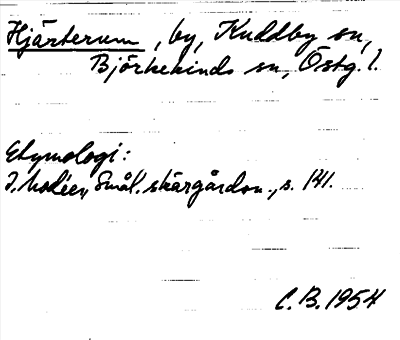 Hjärterum, by, Kuddby sn,
Björkekinds sn, Östg. l.
Etymologi:
I. Modéer, Smål. skärgårdsn., s. 141.
C.B. 1954